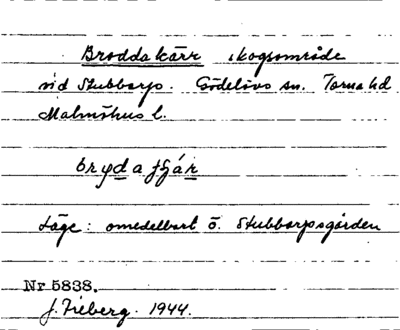 Broddakärr skogsområde
vid Stubbarp. Gödelövs sn. Torna hd
Malmöhus l.
bryda tjár
Läge: omedelbart ö. Stubbarpsgården
Nr 5838.
J. Fieberg. 1944.